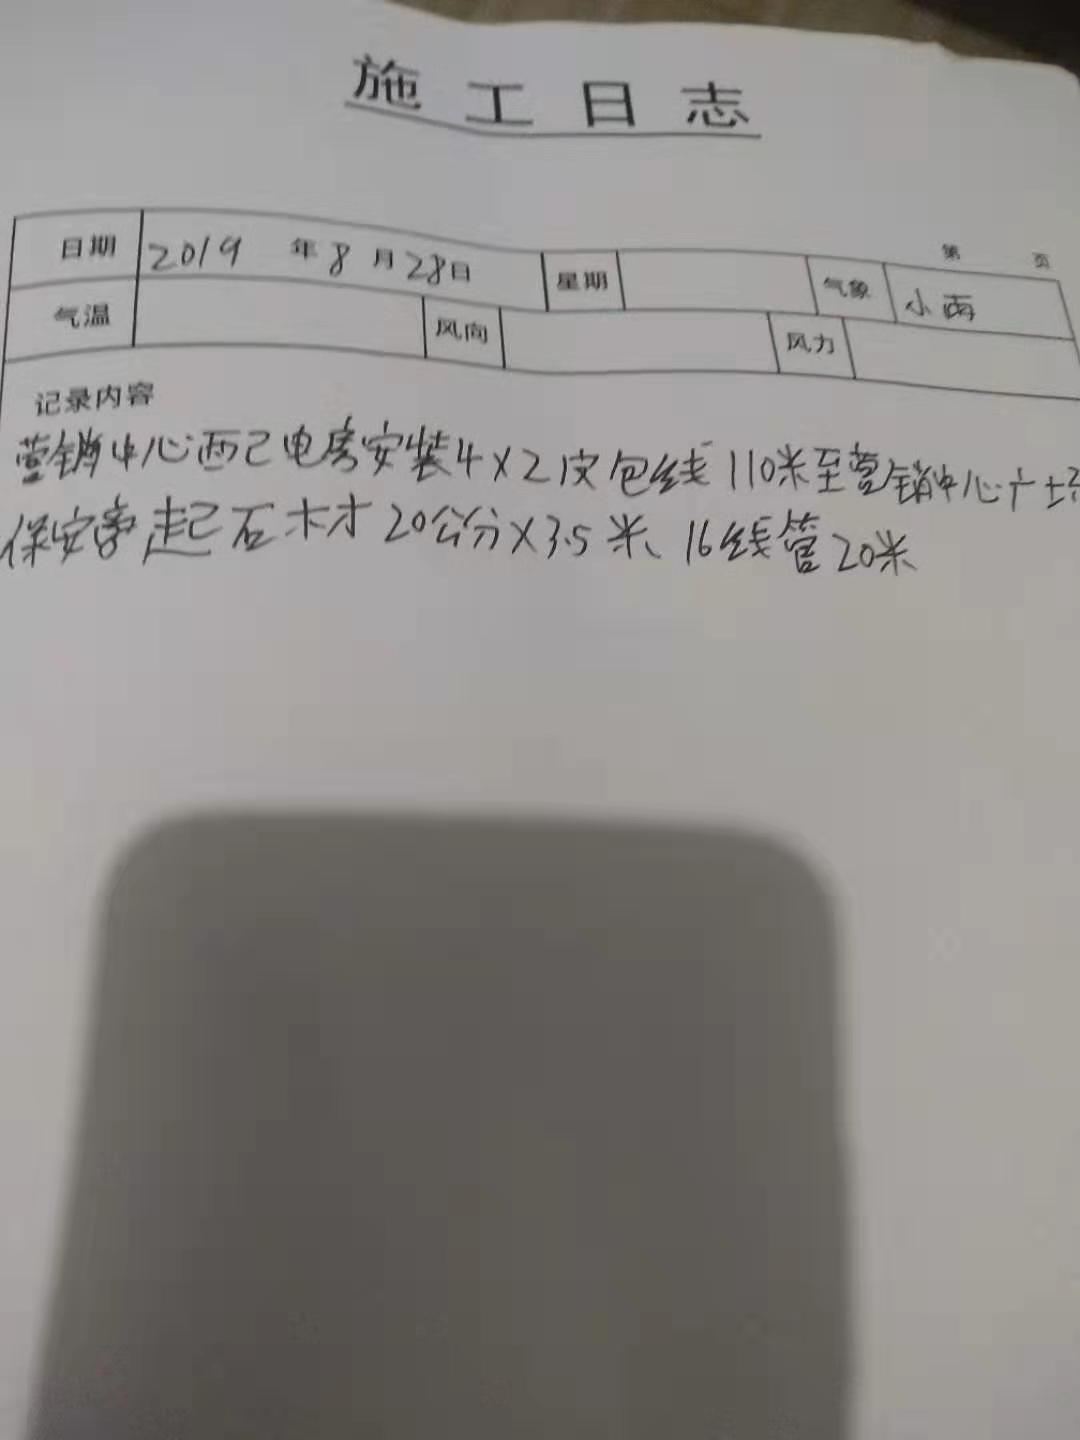 施工日志
第 页
日期 2019 年 8 月 28 日 星期 气象 小雨
气温 风向 风力
记录内容
营销中心配电房安装4×2皮包线110米至营销中心广场
保安亭起石材20公分×3.5米、16线管20米